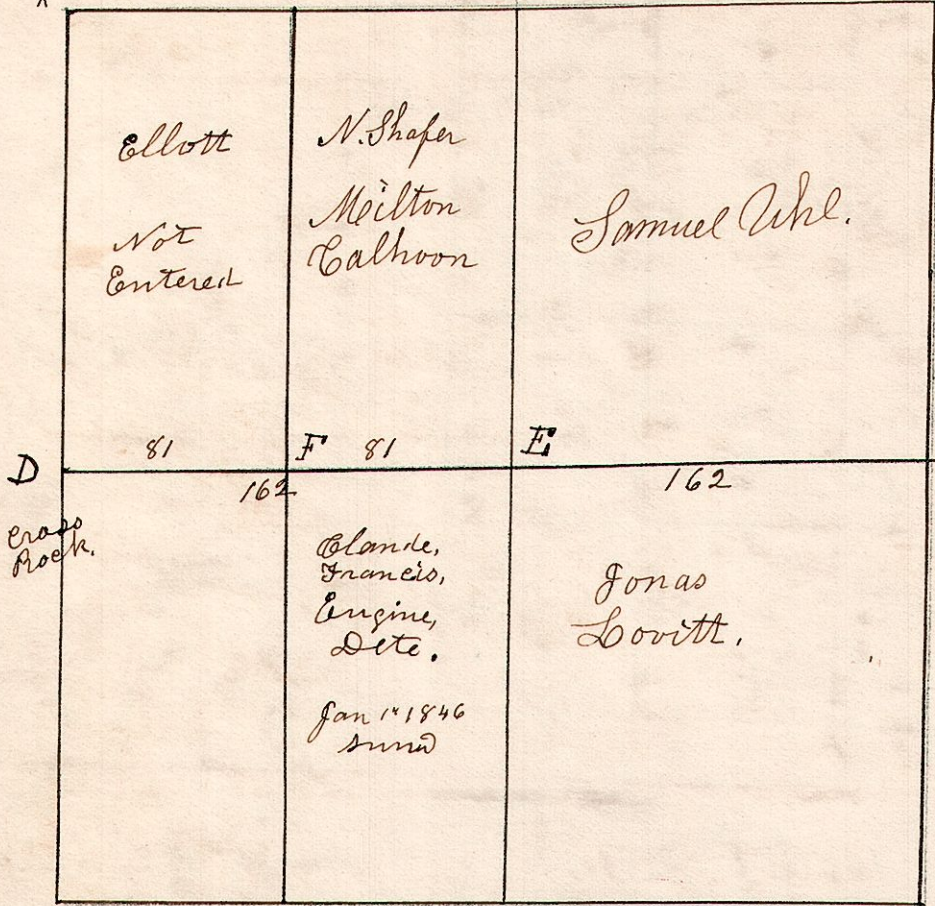 Ellott
Not
Entered
N. Shafer
Milton
Calhoon
Samuel Uhl.
81
F 81
E
D
162
162
Cross
Rock.
Claude,
Francis,
Engine,
Dete.
Jan 1st 1846
Jonas
Lovitt.